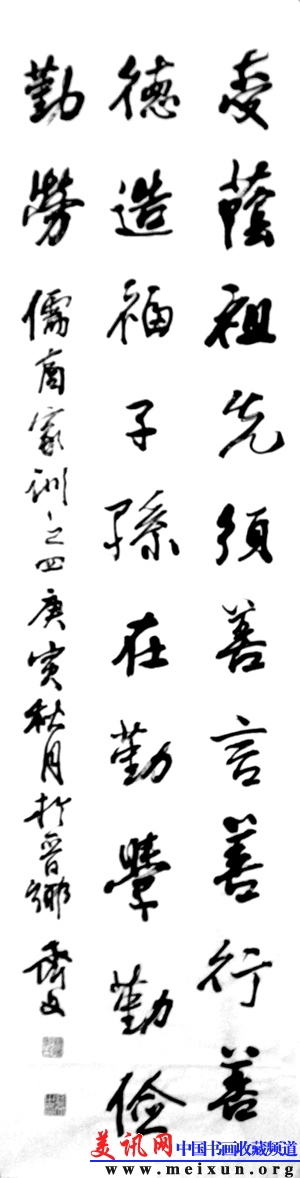 受蔭祖先須善言善行善
德造福子孫在勤學勤儉
勤勞
儒商家訓之四庚寅秋月於晉鄉
美讯网 中国书画收藏频道
www.meixun.org